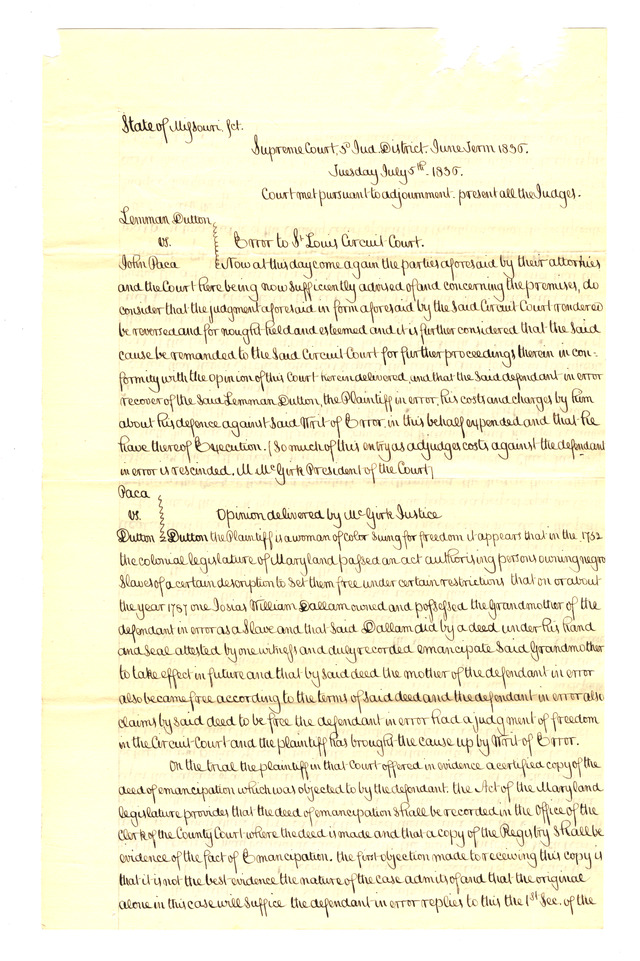 State of Missouri. Sct.
Supreme Court, 3d Jud. District. June Term 1836.
Tuesday July 5th. 1836.
Court met pursuant to adjournment. present all the Judges.
Lemman Dutton
vs. Error to St Louis Circuit Court.
John Paca Now at this day come again the parties aforesaid by their attornies
and the Court here being now sufficiently advised of and concerning the premises, do
consider that the judgment aforesaid in form aforesaid by the Said Circuit Court rendered
be reversed and for nought held and esteemed and it is further considered that the Said
cause be remanded to the Said Circuit Court for further proceedings therein in con-
formity with the opinion of this Court herein delivered, and that the Said defendant in error
recover of the Said Lemman Dutton, the Plaintiff in error, his costs and charges by him
about his defence against Said Writ of Error in this behalf expended and that he
have thereof Execution. (So much of this entry as adjudges costs against the defendant
in error is rescinded. M McGirk President of the Court)
Paca
vs. Opinion delivered by McGirk Justice
Dutton Dutton the Plaintiff is a woman of color Suing for freedom it appears that in the 1752
the colonial legislature of Maryland passed an act authorising persons owning negro
Slaves of a certain description to Set them free under certain restrictions that on or about
the year 1787 one Josias William Dallam owned and possessed the Grandmother of the
defendant in error as a Slave and that Said Dallam did by a deed under his hand
and Seal attested by one witness and duly recorded emancipate Said Grandmother
to take effect in future and that by said deed the mother of the defendant in error
also became free according to the terms of said deed and the defendant in error also
claims by said deed to be free the defendant in error had a judgment of freedom
in the Circuit Court and the plaintiff has brought the cause up by Writ of Error.
On the trial the plaintiff in that Court offered in evidence a certified copy of the
deed of emancipation which was objected to by the defendant. the Act of the Maryland
legislature provides that the deed of emancipation Shall be recorded in the Office of the
Clerk of the County Court where the deed is made and that a copy of the Registry Shall be
evidence of the fact of Emancipation. the first objection made to receiving this copy is
that it is not the best evidence the nature of the case admits of and that the original
alone in this case will Suffice the defendant in error replies to this the 1st Sec. of the